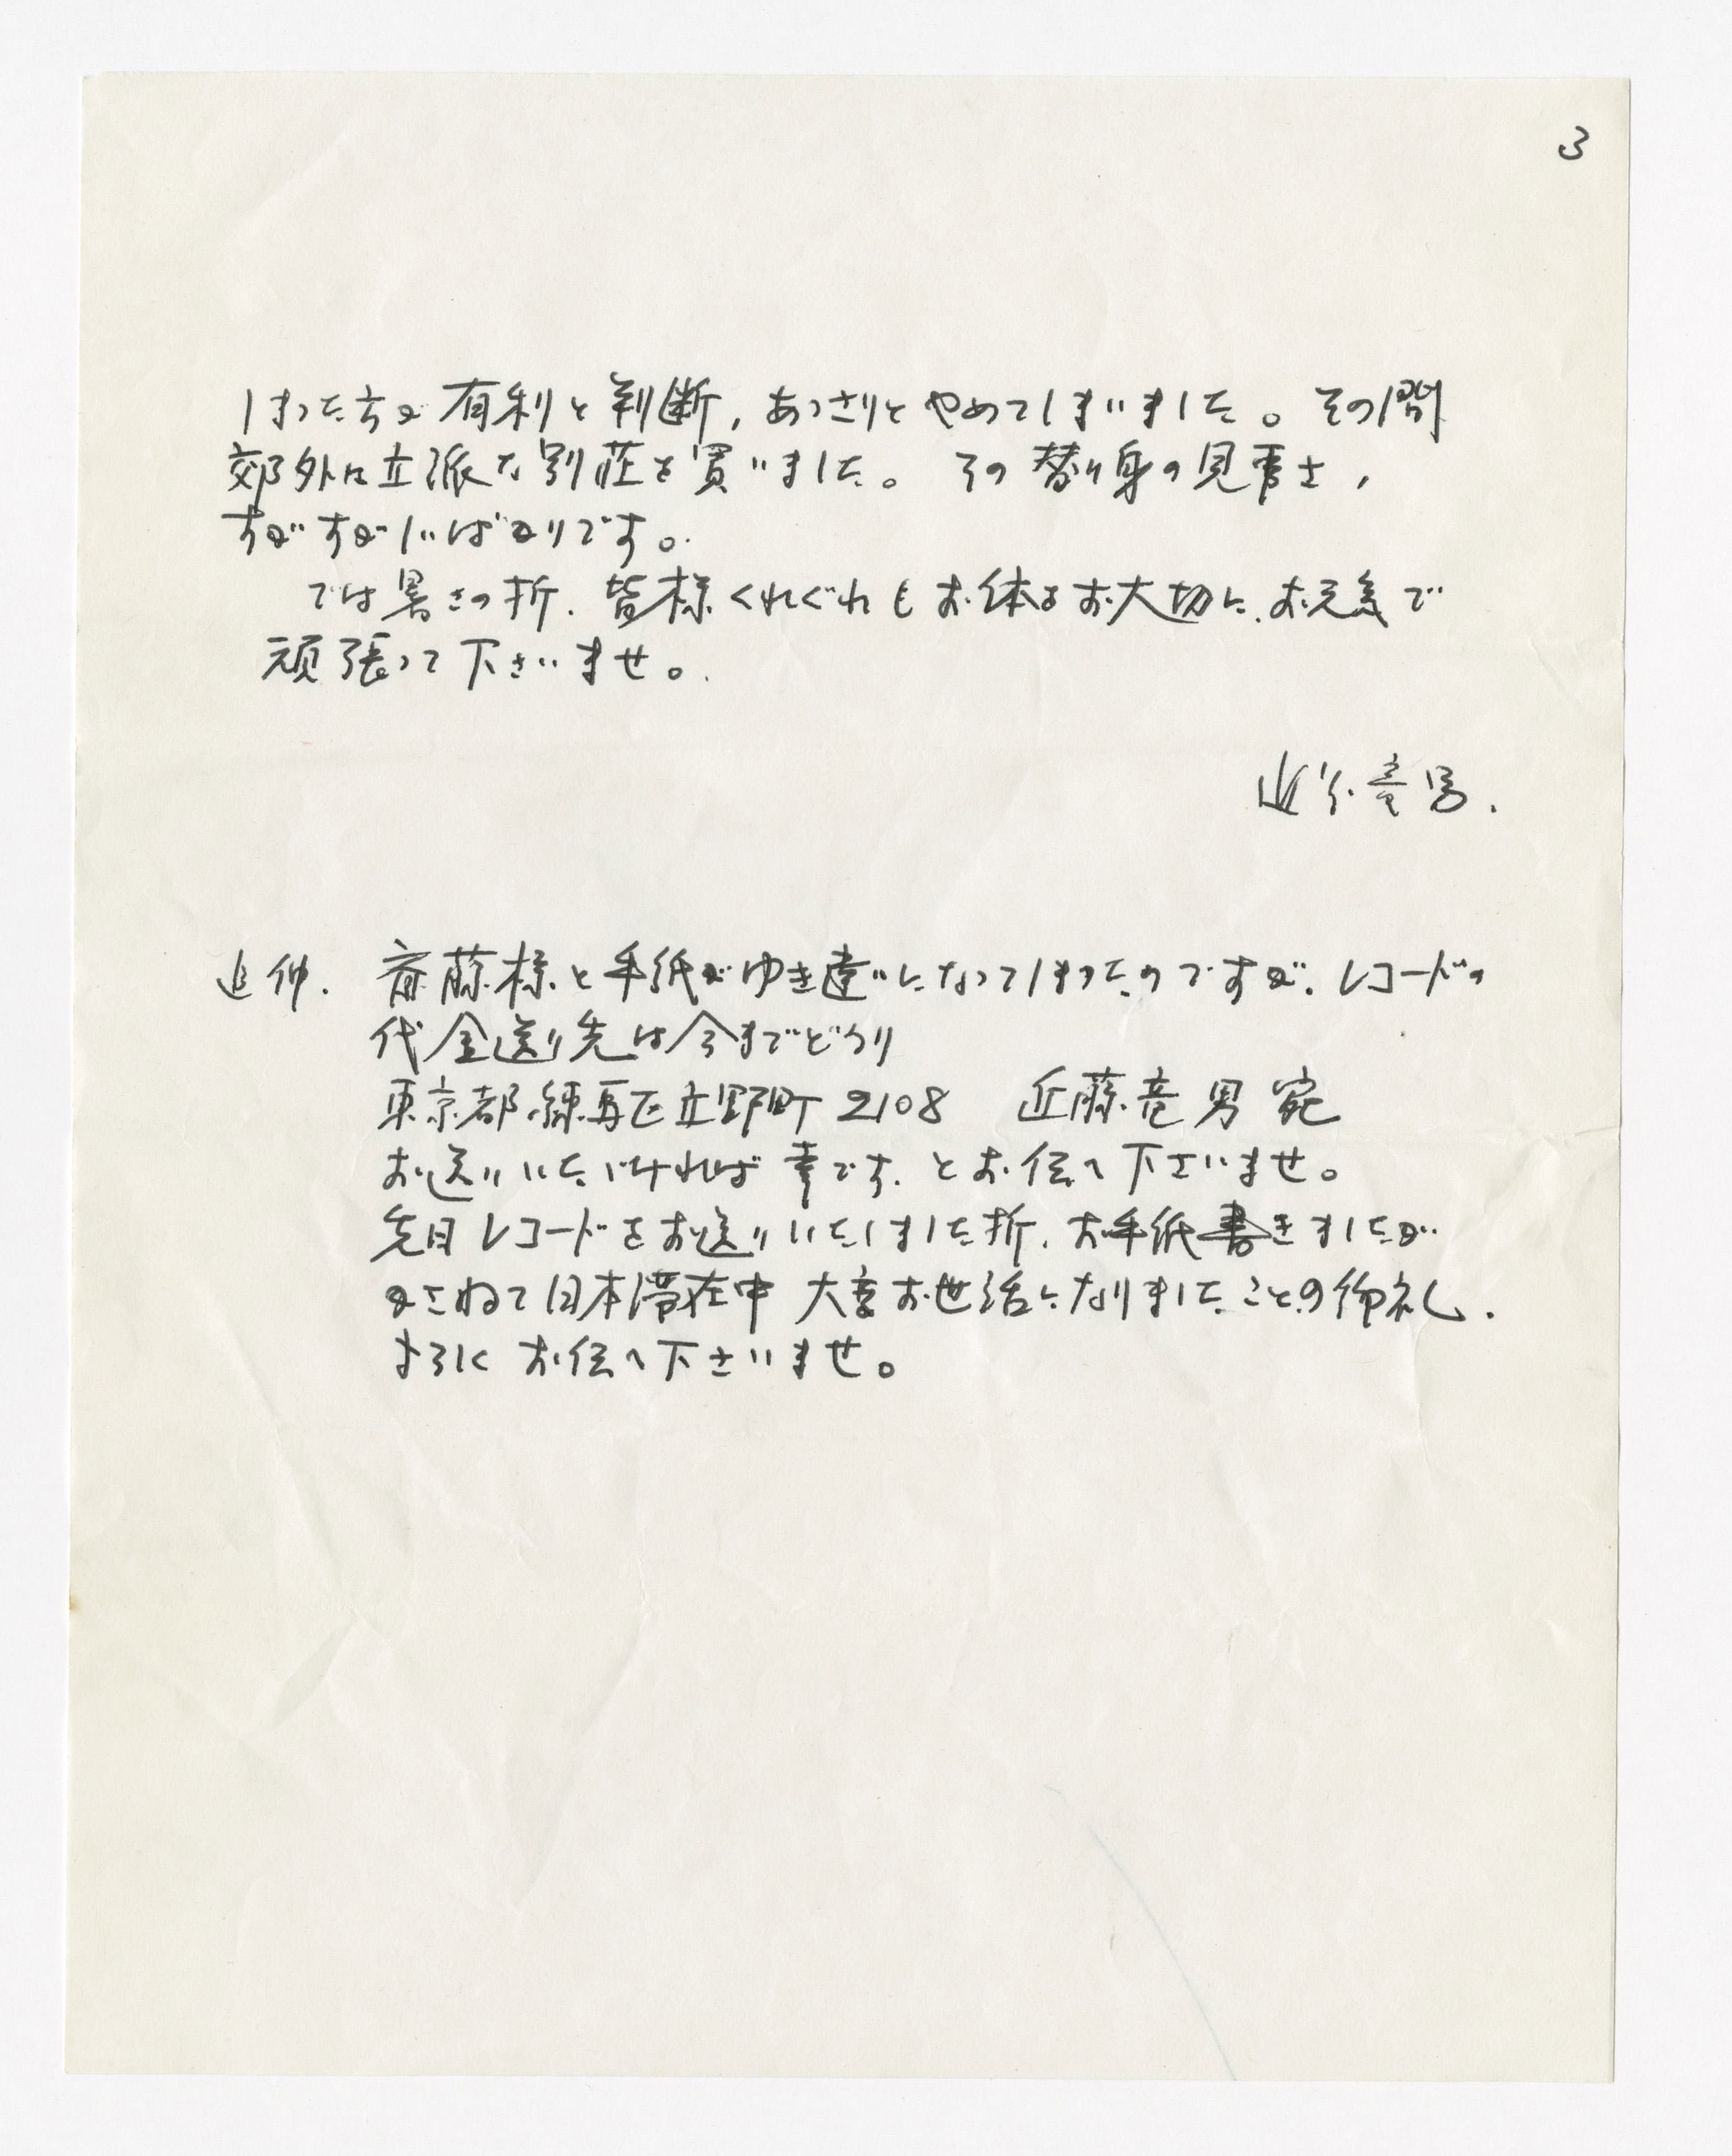 3
しまった方が有利と判断，あっさりとやめてしまいました。その間
郊外に立派な別荘を買いました。その替り身の見事さ，
すがすがしいばかりです。
では暑さの折、皆様くれぐれもお体をお大切に、お元気で
頑張って下さいませ。
近藤竜男.
追伸. 斎藤様と手紙がゆき違いになってしまったのですが、レコードの
代金送り先は今までどうり
東京都練馬区立野町2108 近藤竜男宛
お送りいただければ幸です、とお伝へ下さいませ。
先日レコードをお送りいたしました折、お手紙書きましたが
かさねて日本滞在中大変お世話になりましたことの御礼、
よろしくお伝へ下さいませ。